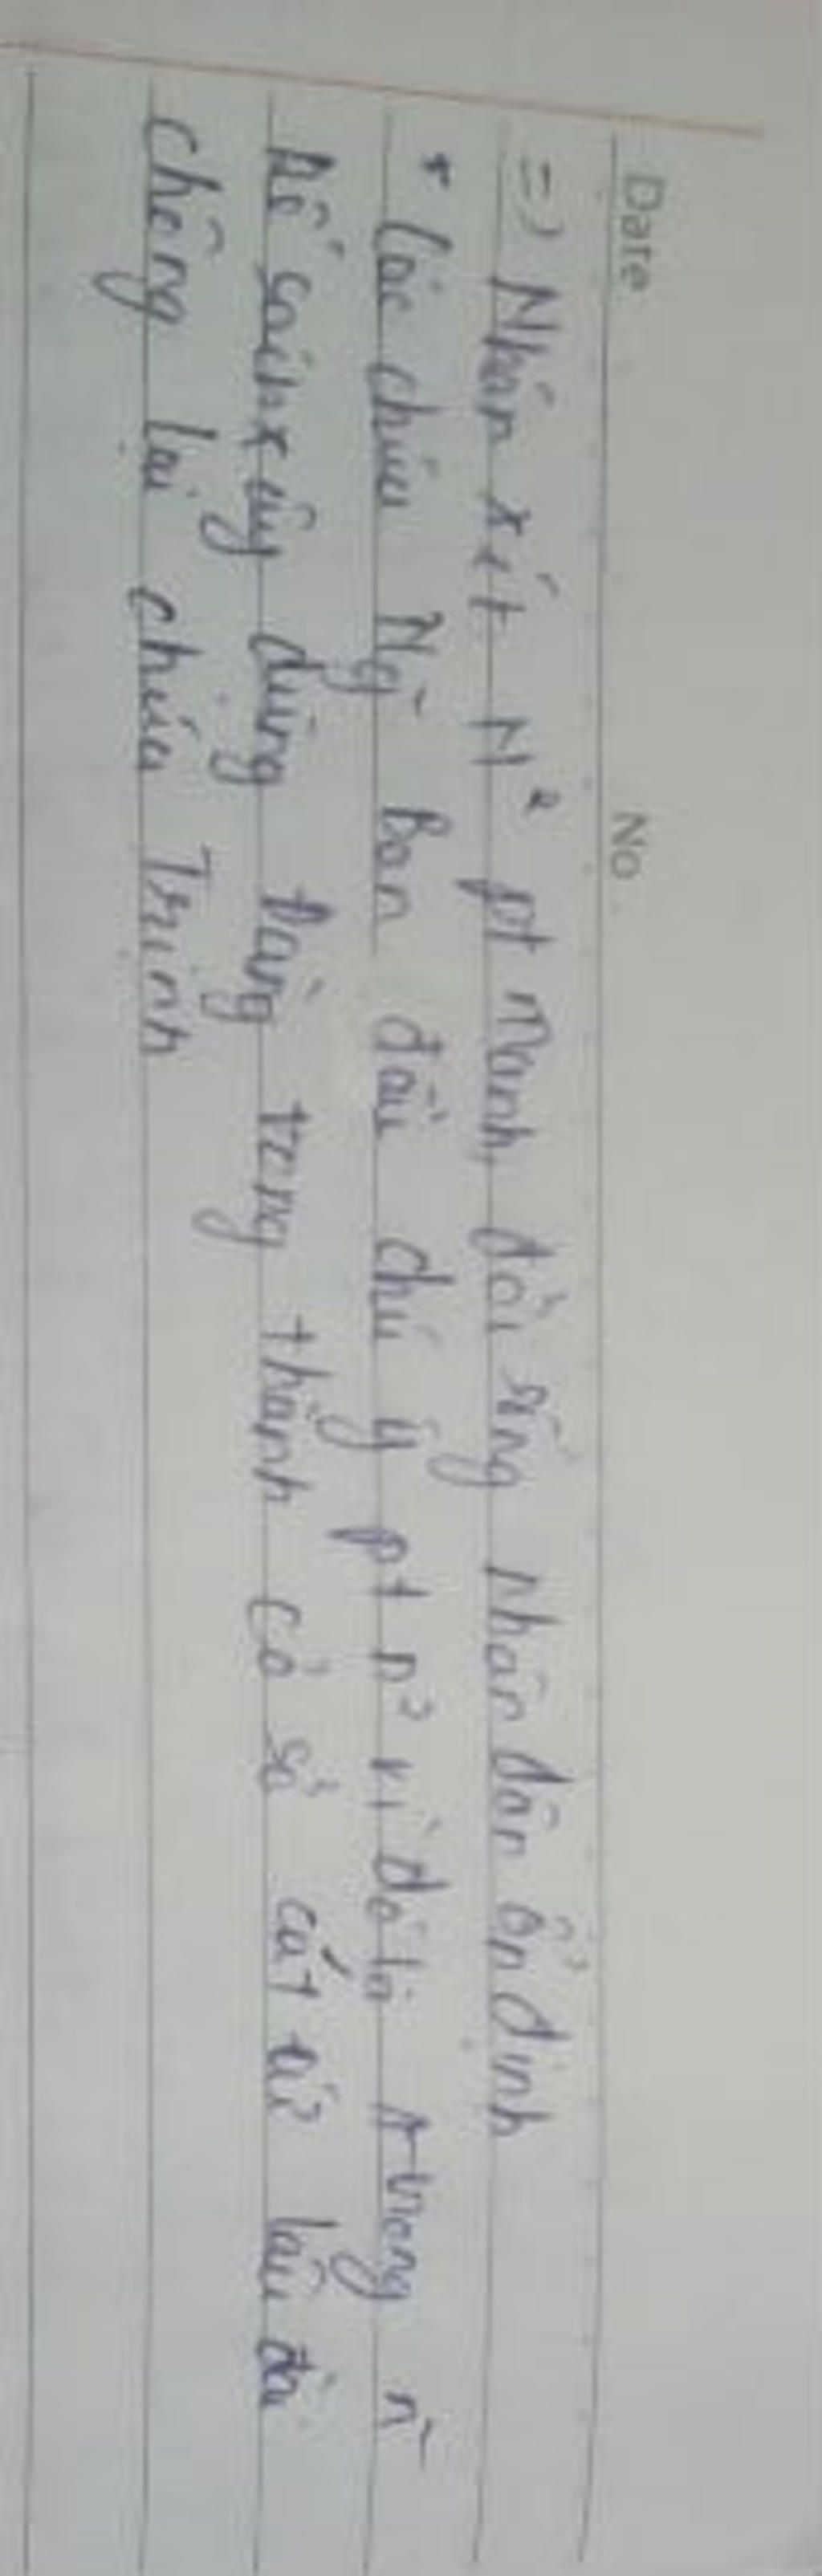 Date No.
=) Nhận xét N² pt mạnh, đời sống nhân dân ổn định
* Các chúa Ng~ Ban đầu chú ý pt n² vì đó là trong n~
kế sách xây dựng Đàng trong thành cơ sở cát cứ lâu dài
chống lại chúa Trịnh